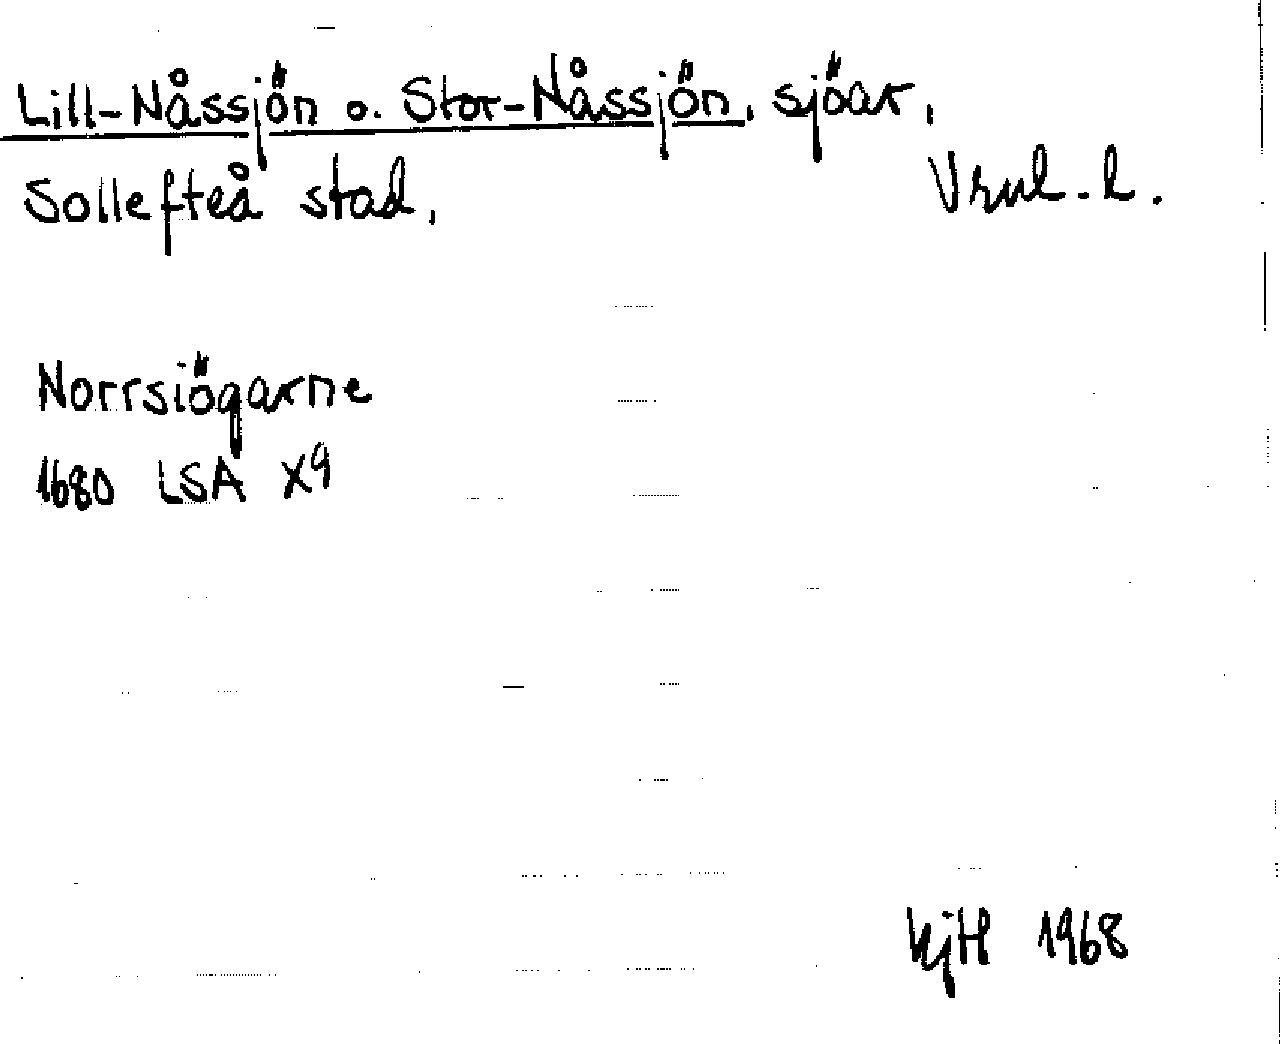 Lill-Nåssjön o. Stor-Nåssjön, sjöar,
Sollefteå stad,
Norrsiögarne
1680 LSA X9
KjH 1968